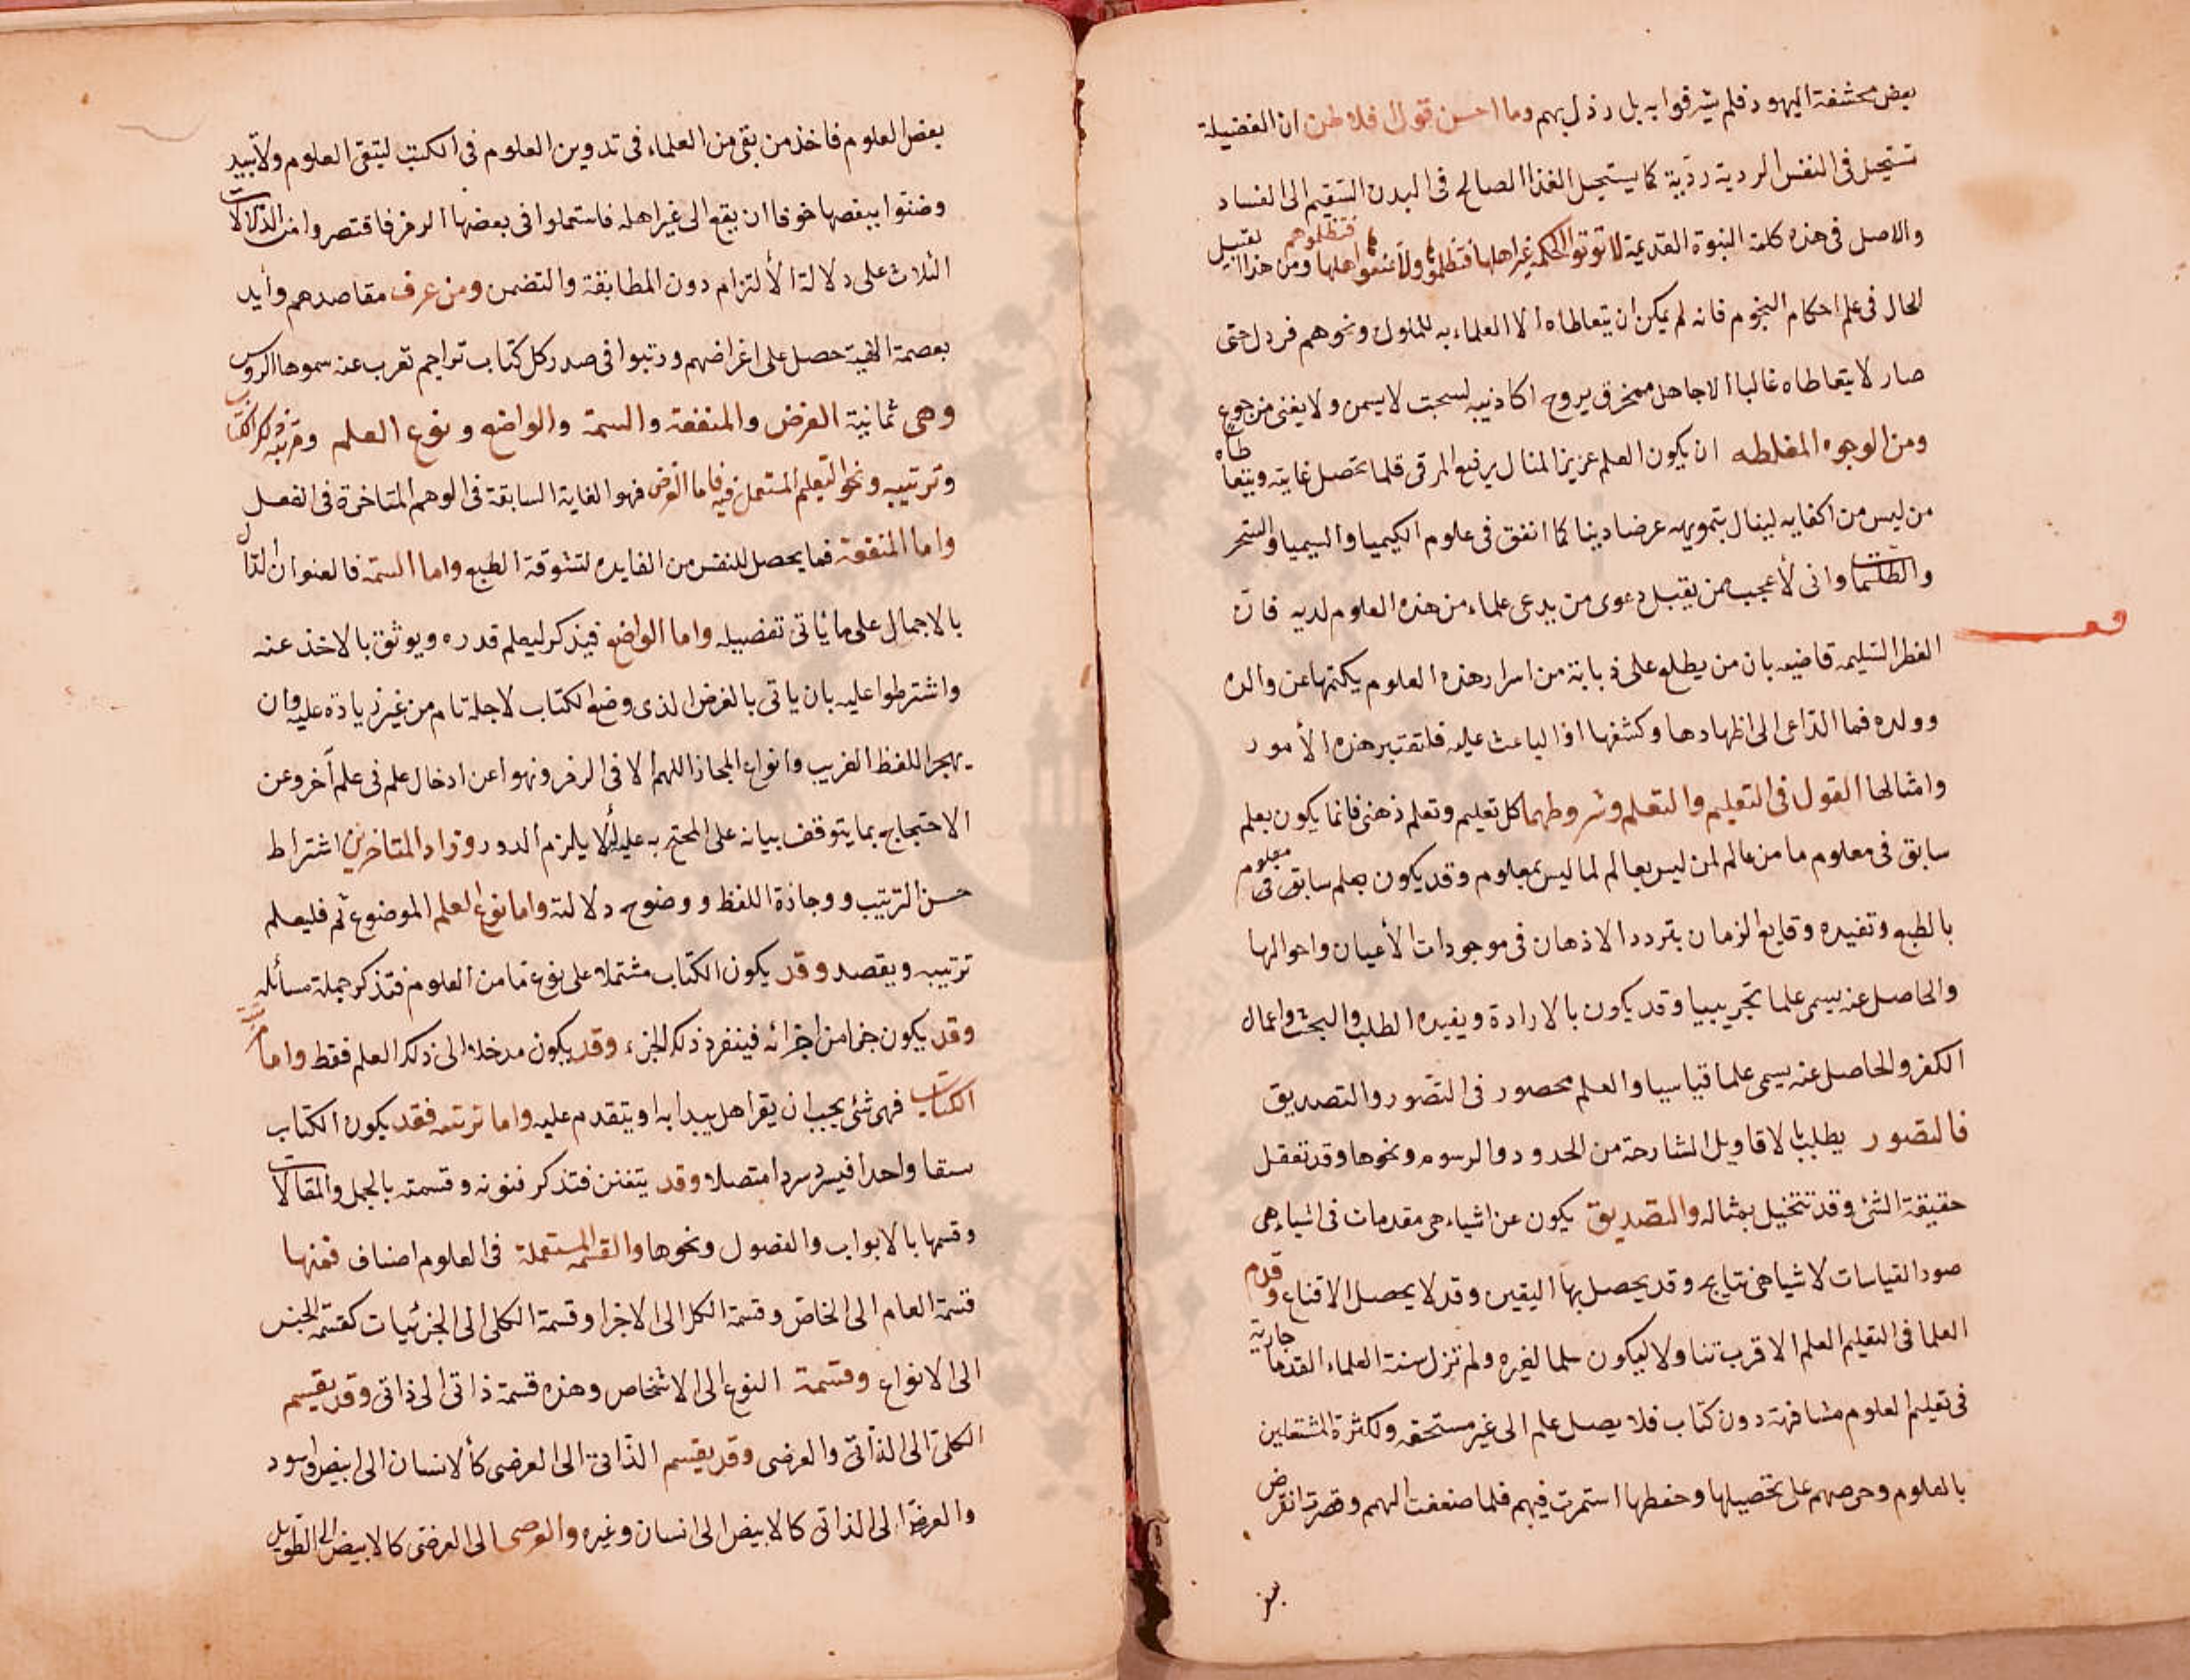 بعض محشفة اليهود فلم يشرفوا به بل رذل بهم وما احسن قول افلاطن ان الفضيلة
تستحيل فى النفس الردية رذية كما يستحيل الغذا الصالح فى البدن السقيم الى الفساد
والاصل فى هذه كلمة النبوة القديمة لا توتوا الحكمة غير اهلها فتظلموها ولا تمنعوها اهلها فتظلوهم ومن هذا القبيل
الحال فى علم احكام النجوم فانه لم يمكن ان يتعاطاه الا العلماء به للملوك ونحوهم فرذل حتى
صار لا يتعاطاه غالبا الا جاهل ممخرق يروح اكاذيبه لسحت لا يسمن ولا يغنى من جوع
ومن الوجوه المغلطه ان يكون العلم عزيز المنال رفيع المرقى قلما تحصل غايته ويتعاطاه
من ليس من اكفايه لينال بتمويهه عرضا دينا كما اتفق فى علوم الكيميا والسيميا والسحر
والطلسمات وانى لأعجب ممن يقبل دعوى من يدعى علماء من هذه العلوم لديه فان
الفطر السليمه قاضيه بان من يطلع على ذبابة من اسرار هذه العلوم يكتمها عن والده
وولده فما الداعى الى اظهارها وكشفها اذ الباعث عليه فلتعتبر هذه الأمور
وامثالها القول فى التعليم والتعلم وشروطهما كل تعليم وتعلم ذهنى فانما يكون بعلم
سابق فى معلوم ما من عالم لمن ليس بعالم لما ليس بمعلوم وقد يكون بعلم سابق فى معلوم
بالطبع وتفيده وقايع الزمان بتردد الاذهان فى موجودات الأعيان واحوالها
والحاصل عنه يسمى علما تجريبيا وقد يكون بالارادة ويفيده الطلب والبحث واعمال
الكفر والحاصل عنه يسمى علما قياسيا والعلم محصور فى التصور والتصديق
فالتصور يطلب بالاقاويل الشارحة من الحدود والرسوم ونحوها وقد تعقل
حقيقة الشئ وقد تتخيل بمثاله والتصديق يكون عن اشياء هى مقدمات فى اشياء هى
صور القياسات لاشيا هى نتايج وقد يحصل بها اليقين وقد لا يحصل الا قناع وقدم
العلما فى التعليم العلم الاقرب تناولا ليكون سلما لغيره ولم تزل سنة العلماء القدما جارية
فى تعليم العلوم مشافهة دون كتاب فلا يصل علم الى غير مستحقه ولكثرة المشتغلين
بالعلوم وحرصهم على تحصيلها وحفظها استمرت فيهم فلما ضعفت الهمم وقصرت انقرض
بعض العلوم فاخذ من بقى من العلماء فى تدوين العلوم فى الكتب لتبقى العلوم ولا تبيد
وضنوا ببعضها خوفا ان يقع الى غير اهله فاستعملوا فى بعضها الرمز فاقتصروا من الدلالات
الثلاث على دلالة الألتزام دون المطابقة والتضمن ومن عرف مقاصدهم وأيد
بعصمة الهية حصل على اغراضهم ورتبوا فى صدر كل كتاب تراجم تعرب عنه سموها الروس
وهى ثمانية الغرض والمنفعة والسمة والواضع ونوع العلم ومرتبة ذلك الكتاب
وترتيبه ونحو التعليم المستعمل فيه فاما الغرض فهو الغاية السابقة فى الوهم المتاخرة فى الفعل
واما المنفعة فما يحصل للنفس من الفايده لتشوقه الطبع واما السمة فالعنوان الدال
بالاجمال على ما يأتى تفصيله واما الواضع فيذكر ليعلم قدره ويوثق بالاخذ عنه
واشترطوا عليه بان ياتى بالغرض الذى وضع الكتاب لاجله تاما من غير زيادة عليه وان
يهجر اللفظ الغريب وانواع المجاز اللهم الا فى الرمز ونهوا عن ادخال علم فى علم آخر وعن
الاحتجاج بما يتوقف بيانه على المحتج به عليه لألا يلزم الدور وزاد المتاخرين اشتراط
حسن الترتيب ووجازة اللفظ ووضوح دلالته واما نوع العلم الموضوع ثم فليعلم
ترتيبه ويقصد وقد يكون الكتاب مشتملا على نوع تما من العلوم فتذكر جملة مسائله
وقد يكون جزا من اجزائه فينفرد ذلك الجزء وقد يكون مدخلا الى ذلك العلم فقط واما مرتبة
الكتاب فهى شئ يجب ان يقرا هل يبدا به او يتقدم عليه واما ترتيبه فقد يكون الكتاب
سقا واحدا فيسرد سردا متصلا وقد يتفنن فتذكر فنونه وقسمته بالجمل والمقالات
وقسمها بالابواب والفصول ونحوها والقسمة المستعملة فى العلوم اصناف فمنها
قسمة العام الى الخاص وقسمة الكل الى الاجزا وقسمة الكلى الى الجزئيات كقسمة الجنس
الى الانواع وقسمة النوع الى الاشخاص وهذه قسمة ذاتى الى ذاتى وقد يقسم
الكلى الى الذاتى والعرضى وقد يقسم الذاتى الى العرضى كالانسان الى ابيض واسود
والعرضى الى الذاتى كالابيض الى انسان وغيره والعرضى الى العرضى كالابيض الى الطويل